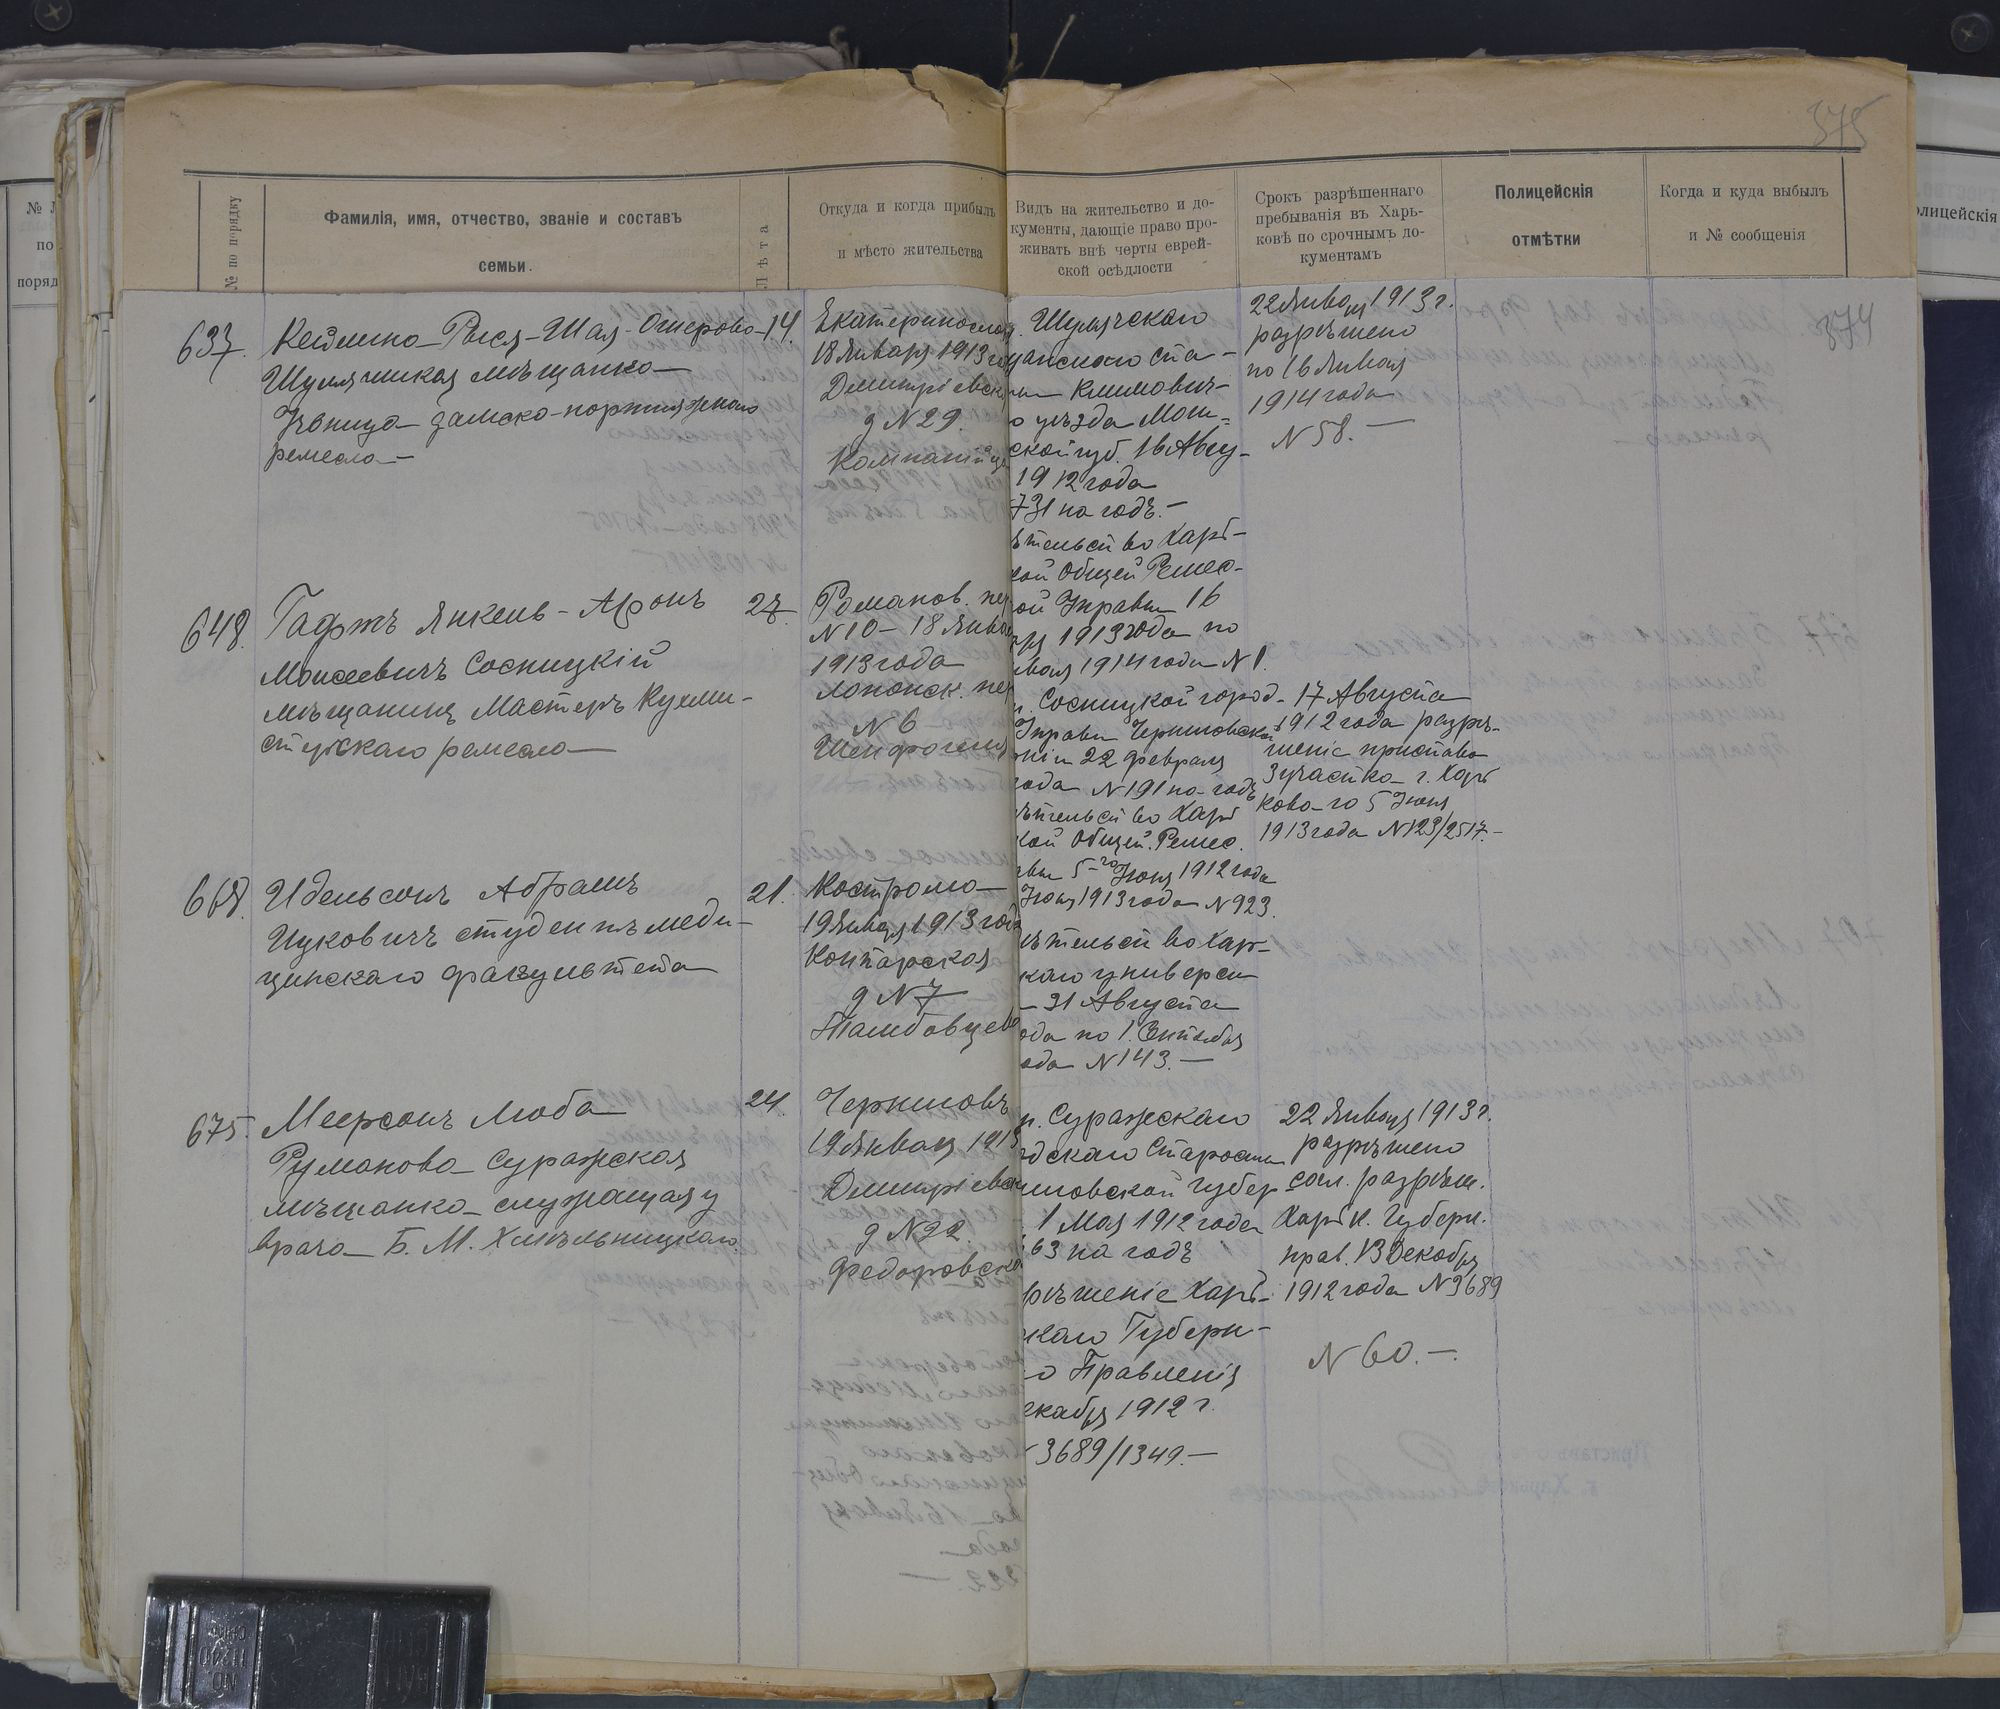 375
374
№ по порядку
Фамилія, имя, отчество, званіе и составъ
семьи.
Лѣта
Откуда и когда прибылъ
и мѣсто жительства
Видъ на жительство и до-
кументы, дающіе право про-
живать внѣ черты еврей-
ской осѣдлости
Срокъ разрѣшеннаго
пребыванія въ Харь-
ковѣ по срочнымъ до-
кументамъ
Полицейскія
отмѣтки
Когда и куда выбылъ
и № сообщенія
637.
Рыся-Шая-Ошерова
Шумячская мѣщанка
дамско-портняжнаго
ремесла
14.
Екатеринослав
18 Января 1913 го
Дмитріевск
д N 29.
Шумячскаго
щанскаго ста-
ы Климович-
о уѣзда Моги-
ской губ. 16 Авгу-
1912 года
731 на годъ.-
ѣтельство Харь-
кой Общей Ремес-
ой Управы 16
аря 1913 года по
нваря 1914 года N 1.
22 Января 1913 г.
разрѣшено
по 16 Января
1914 года
N 58.-
648.
Янкель-Аронъ
Моисеевичъ Сосницкій
мѣщанинъ Мастеръ Кухми-
стерскаго ремесла
27.
Романов. пер
N 10 - 18 Янва
1913 года
Лопанск. пер
N 6
Сосницкой город.
Управы Черниговской
ніи 22 Февраля
года N 191 на годъ
ѣтельство Харь
кой Общей. Ремес.
авы 5-го Іюня 1912 года
Іюня 1913 года N 923.
17 Августа
1912 года разрѣ-
шеніе пристава
3 участка г. Харь
кова по 5 Іюня
1913 года N 123/2517.-
668.
Идельсонъ Абрамъ
Ицковичъ студентъ меди-
цинскаго факультета
21.
Кострома
19 Января 1913 года
Конторская
д N 7
Тамбовцева
ѣтельство Хар-
каго универси
- 31 Августа
ода по 1. Сентября
ода N 143.-
675.
Меерсонъ Люба
Румановна Суражская
мѣщанка служащая у
врача Б. М. Хмѣльницкаго.
24.
Черниговъ
19 Января 1913
Дмитріевск
д N 22.
Федоровско
Суражскаго
одскаго Старосты
иговской Губер
. 1 Мая 1912 года
63 на годъ
рѣшеніе Харь-
скаго Губерн-
о Правленія
екабря 1912 г.
3689/1349.-
22 Января 1913 г.
разрѣшено
согл. разрѣш.
Харьк. Губерн.
прав. 13 Декабря
1912 года N 3689
N 60.-.